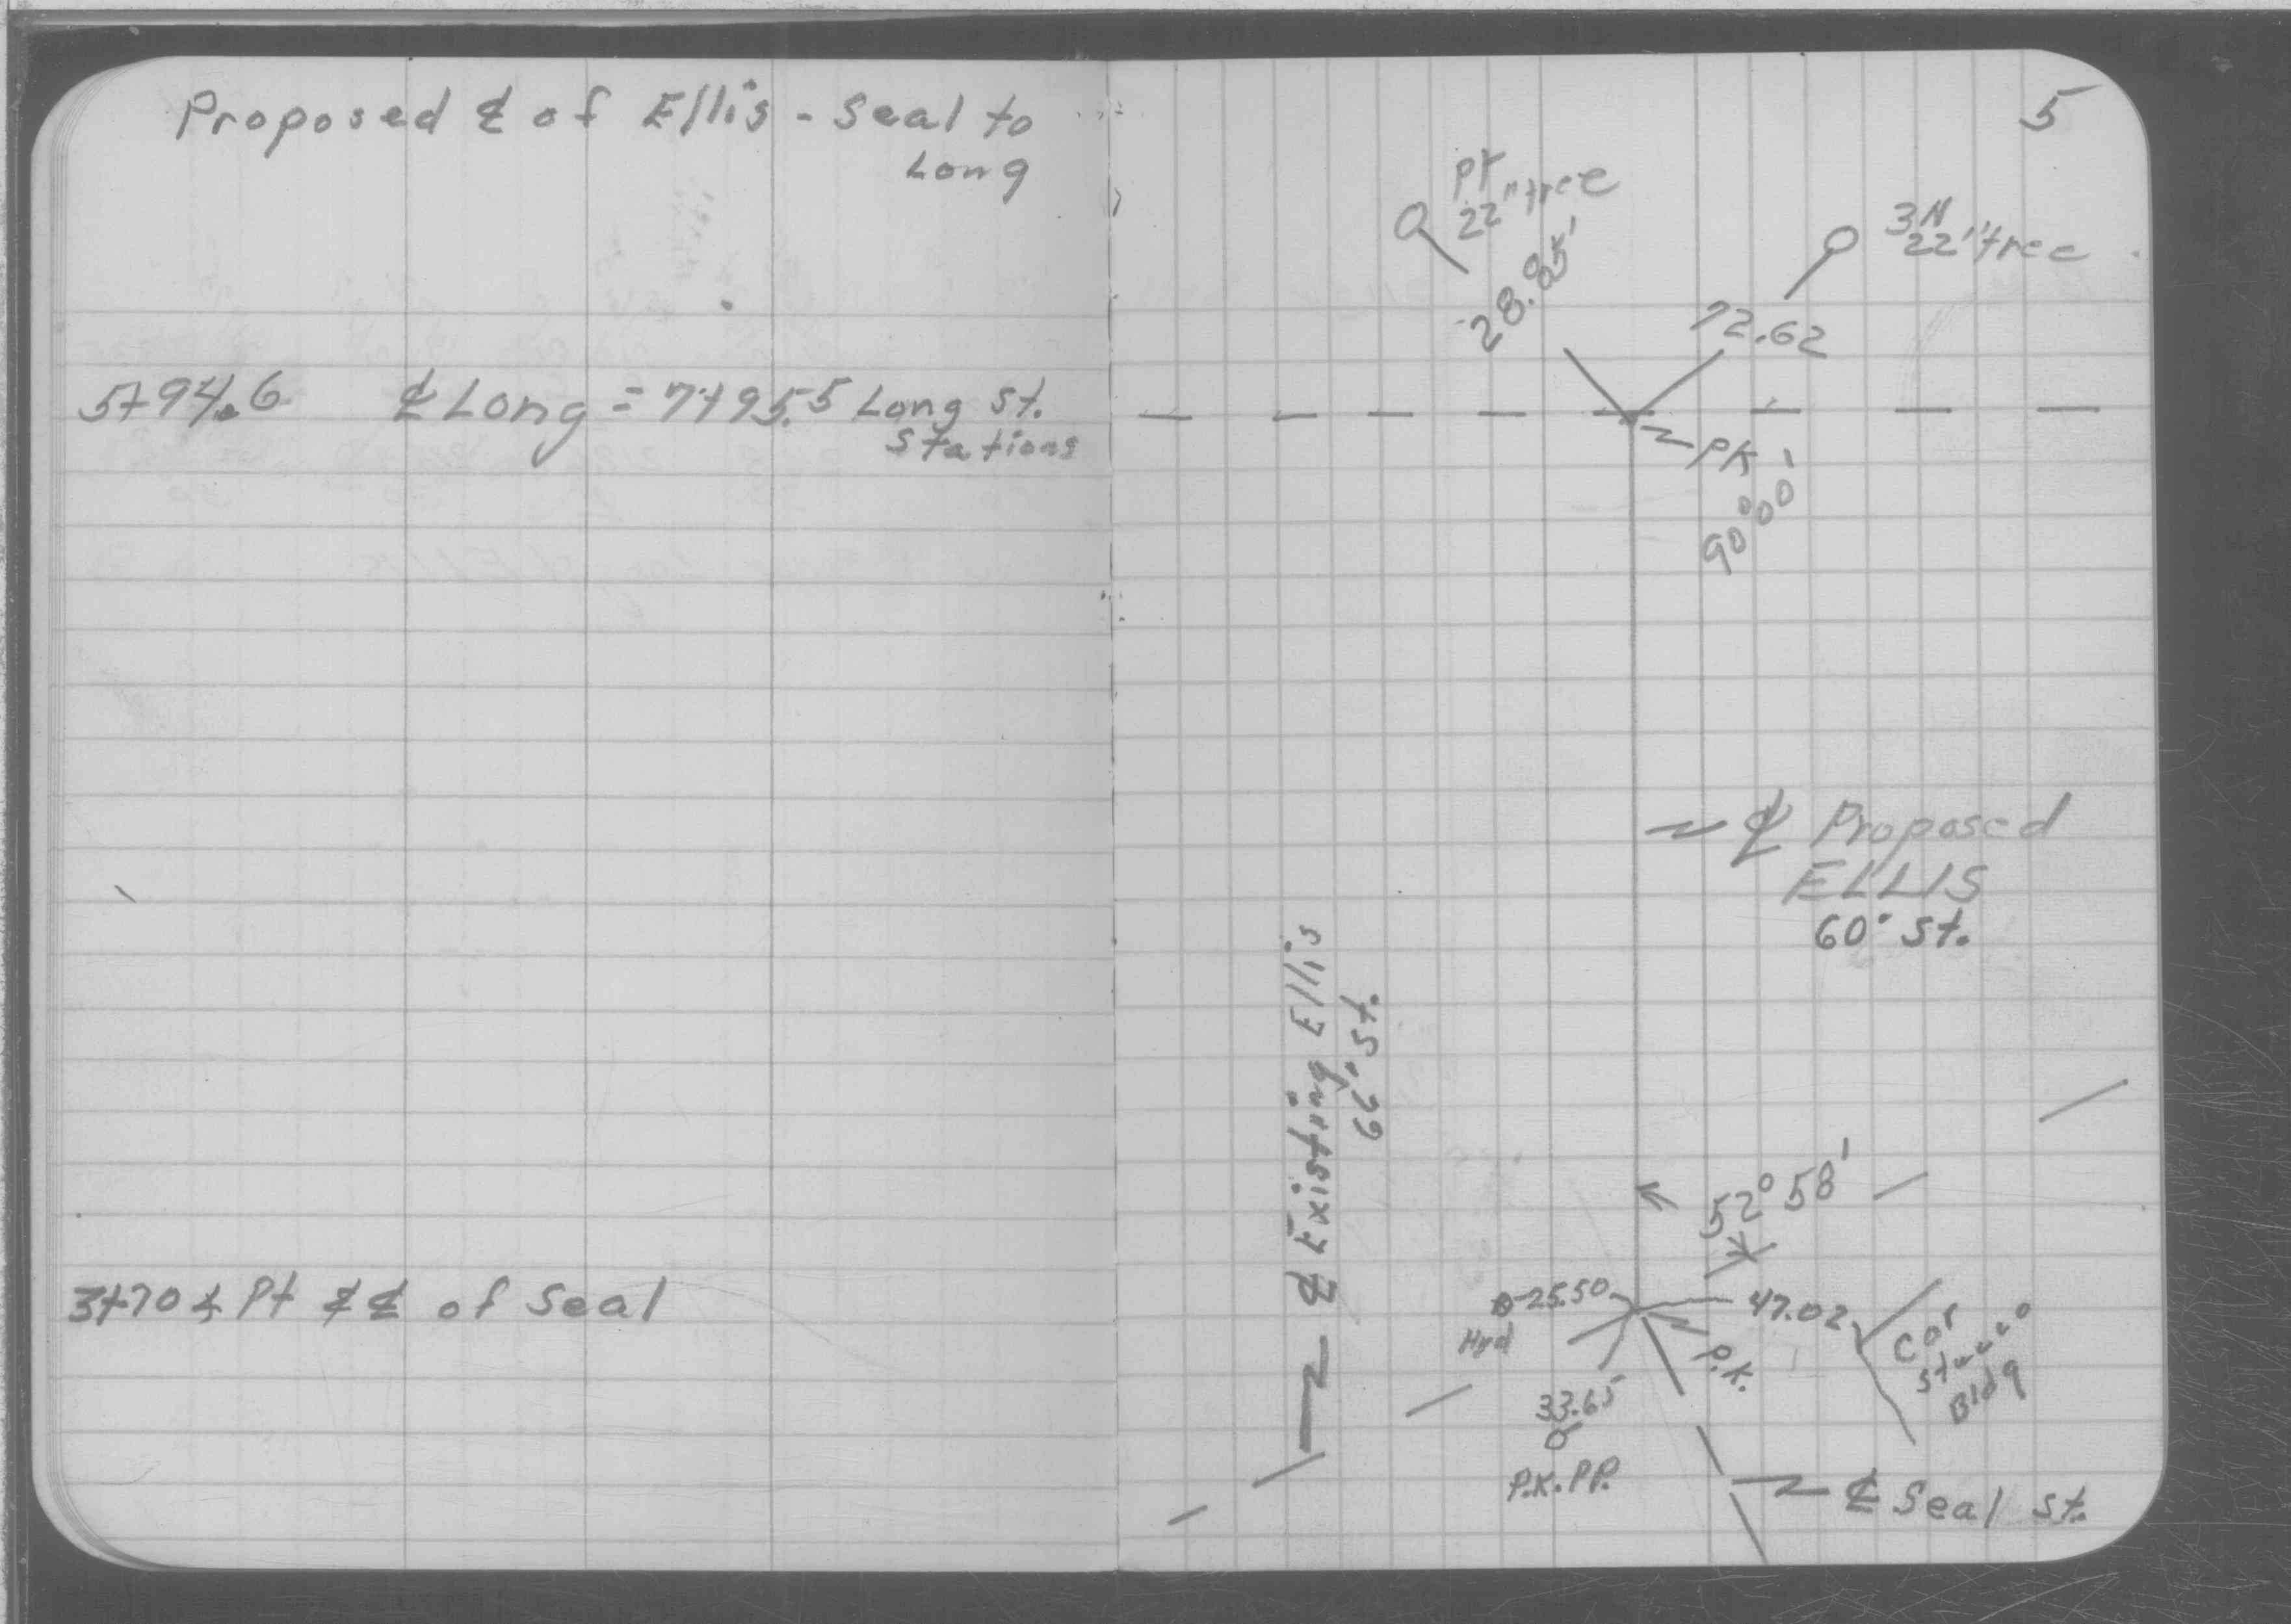 Proposed ℄ of Ellis - Seal to
Long
5+94.6 ℄ Long = 7+95.5 Long St.
Stations
3+70 ∡ Pt ∡ ℄ of Seal
5
PK
22" tree
28.85'
3N
22" tree
72.62
PK
90°00'
℄ Proposed
ELLIS
60' St.
℄ Existing Ellis
66' St.
52° 58'
25.50
Hyd
47.02
Cor
Stucco
Bldg
P.K.
33.65
P.K. PP.
℄ Seal St.